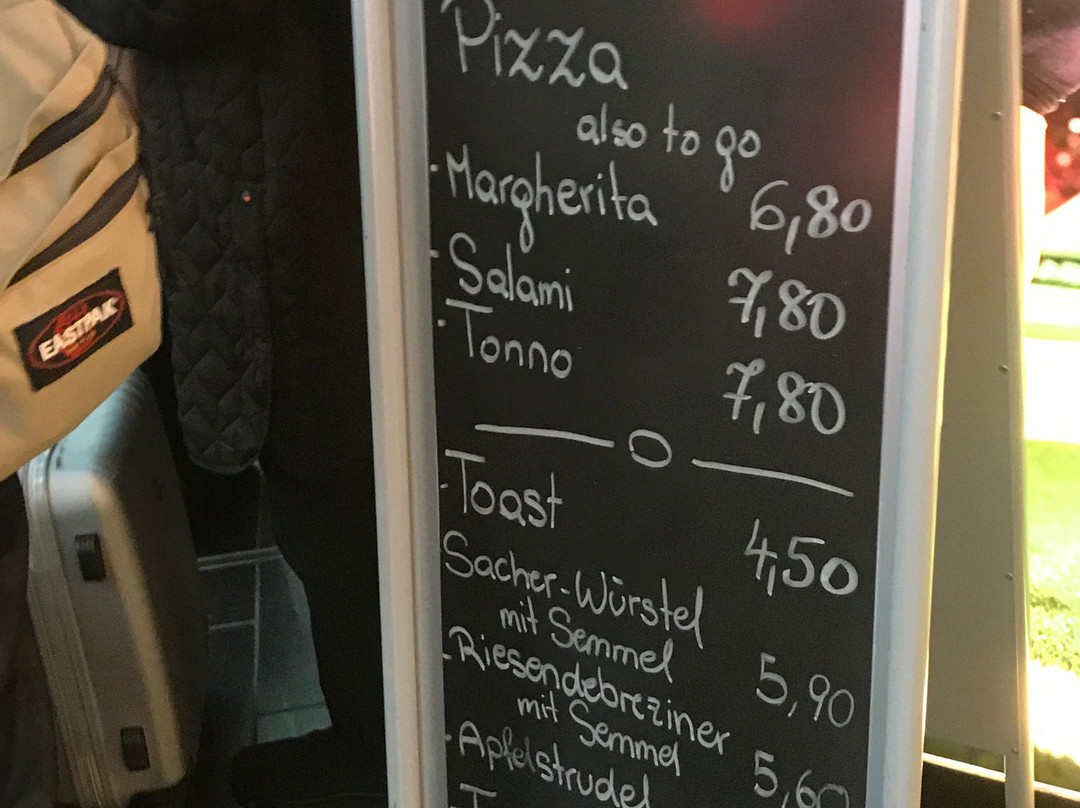 Pizza
also to go
·Margherita 6,80
·Salami 7,80
·Tonno 7,80
—o—
-Toast 4,50
Sacher-Würstel
mit Semmel 5,90
-Riesendebreziner
mit Semmel 5,60
-Apfelstrudel
EASTPAK